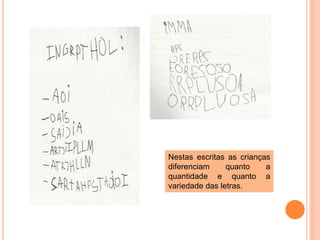 INGRPTHOL:
- AOI
- OAIS
- SAIDIA
- ARTJIPLLM
- ATRJHLLN
- SARTAHPSTADOI
iMMA
RPS
ORERPS
EORESOSO
RRPLUSOA
ORRPLVOSA
Nestas escritas as crianças
diferenciam quanto a
quantidade e quanto a
variedade das letras.